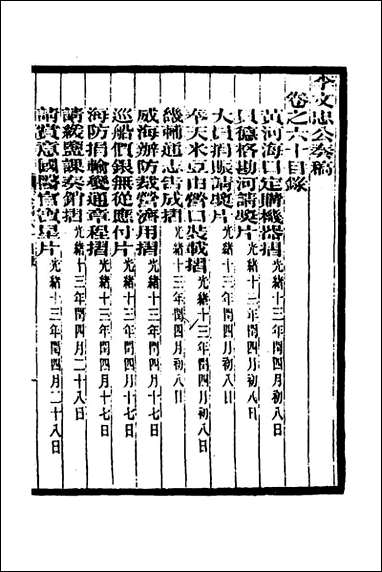 李文忠公奏稿
卷之六十目錄
黃河海口定購機器摺光緒十三年閏四月初八日
貝德格勘河請奬片光緒十三年閏四月初八日
大口捐賑請奬片光緒十三年閏四月初八日
奉天米豆由營口裝載摺光緒十三年閏四月初八日
畿輔通志告成摺光緒十三年閏四月初八日
威海辦防裁營濟用摺光緒十三年閏四月十七日
巡船俸銀無從應付片光緒十三年閏四月十七日
海防捐輸變通章程摺光緒十三年閏四月十七日
請緩鹽課奏銷摺光緒十三年閏四月二十八日
請賞意國醫官寶星片光緒十三年閏四月二十八日